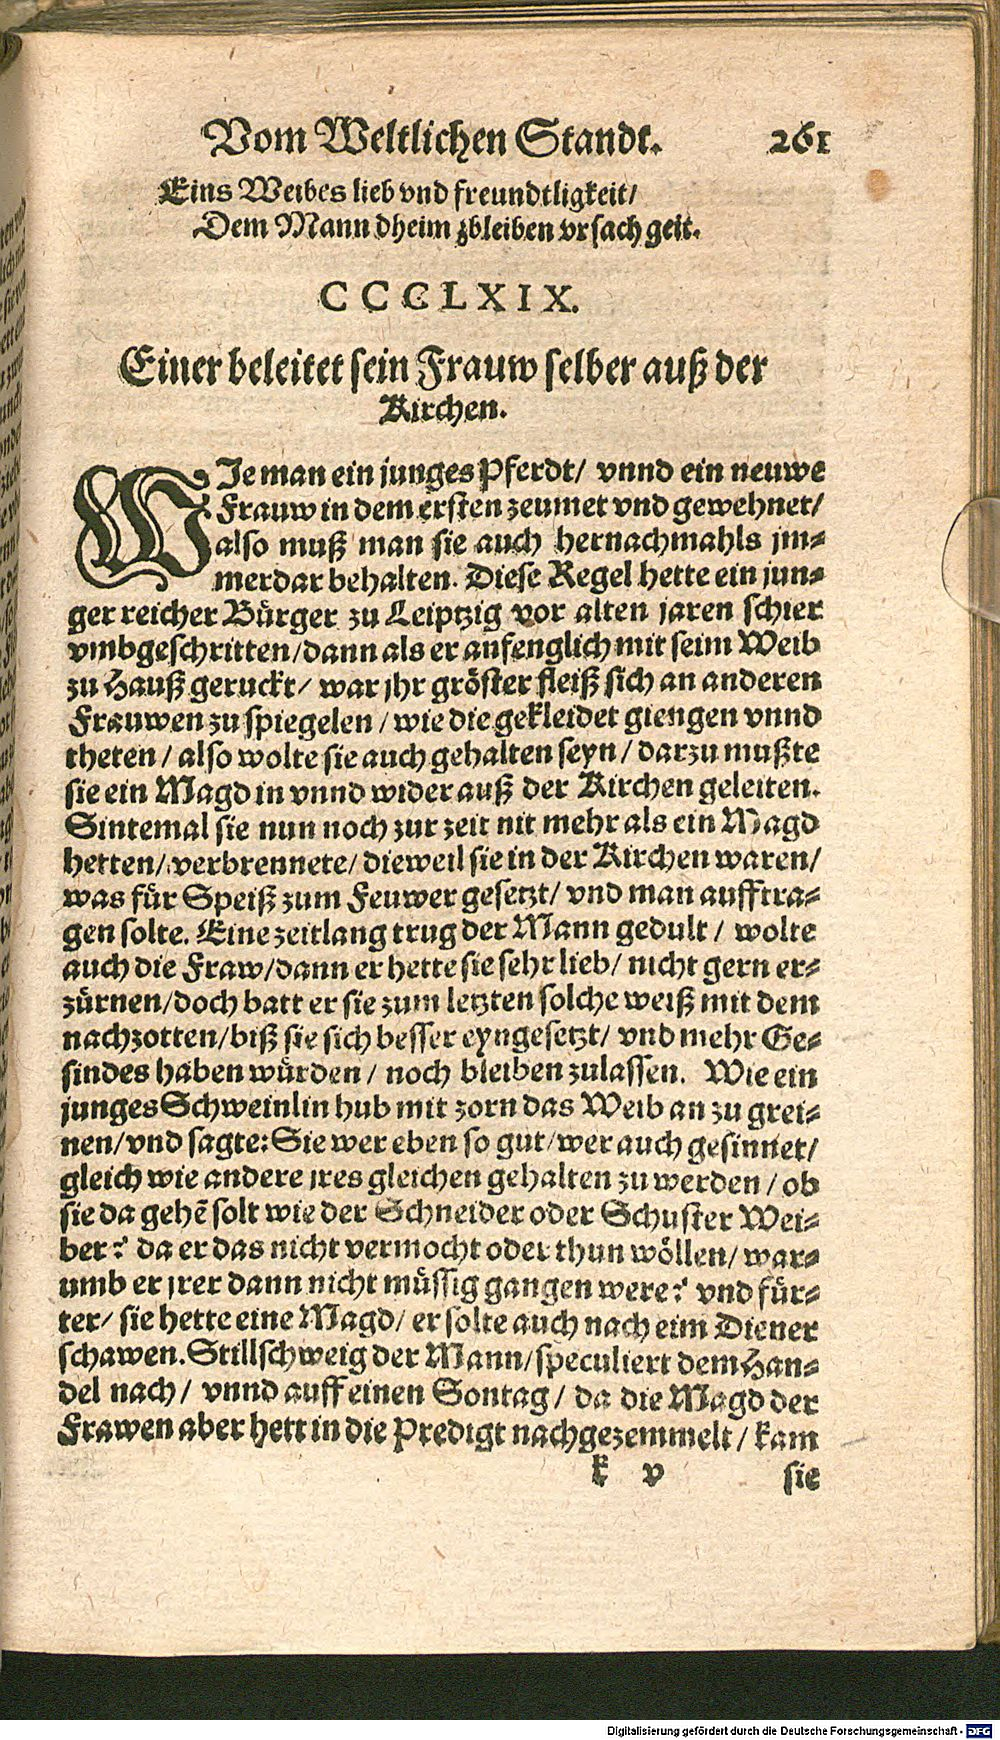 Vom Weltlichen Standt. 261
Eins Weibes lieb vnd freundtligkeit/
Dem Mann dheim zbleiben vrsach geit.
CCCLXIX.
Einer beleitet sein Frauw selber auß der
Kirchen.
WJe man ein junges Pferdt/ vnnd ein neuwe
Frauw in dem ersten zeumet vnd gewehnet/
also muß man sie auch hernachmahls jm⸗
merdar behalten. Diese Regel hette ein jun⸗
ger reicher Bürger zu Leiptzig vor alten jaren schier
vmbgeschritten/dann als er anfenglich mit seim Weib
zu Hauß geruckt/ war jhr gröster fleiß sich an anderen
Frauwen zu spiegelen/ wie die gekleidet giengen vnnd
theten/ also wolte sie auch gehalten seyn/ darzu mußte
sie ein Magd in vnnd wider auß der Kirchen geleiten.
Sintemal sie nun noch zur zeit nit mehr als ein Magd
hetten/ verbrennete/ dieweil sie in der Kirchen waren/
was für Speiß zum Feuwer gesetzt/ vnd man aufftra⸗
gen solte. Eine zeitlang trug der Mann gedult/ wolte
auch die Fraw/dann er hette sie sehr lieb/ nicht gern er⸗
zürnen/doch batt er sie zum letzten solche weiß mit dem
nachzotten/biß sie sich besser eyngesetzt/ vnd mehr Ge⸗
sindes haben würden/ noch bleiben zulassen. Wie ein
junges Schweinlin hub mit zorn das Weib an zu grei⸗
nen/vnd sagte: Sie wer eben so gut/wer auch gesinnet/
gleich wie andere jres gleichen gehalten zu werden/ ob
sie da gehẽ solt wie der Schneider oder Schuster Wei⸗
ber? da er das nicht vermocht oder thun wöllen/ war⸗
umb er jrer dann nicht müssig gangen were? vnd für⸗
ter/ sie hette eine Magd/ er solte auch nach eim Diener
schawen. Stillschweig der Mann/speculiert dem Han⸗
del nach/ vnnd auff einen Sontag/ da die Magd der
Frawen aber hett in die Predigt nachgezemmelt/ kam
k v sie
Digitalisierung gefördert durch die Deutsche Forschungsgemeinschaft - DFG